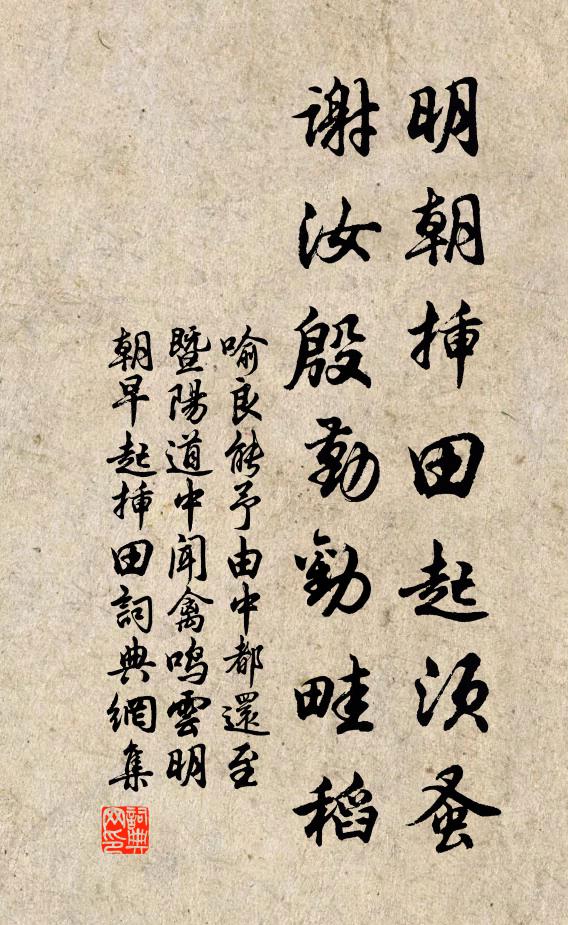 明朝挿田起須蚤
謝汝殷勤勸畦稻
喻良能予由中都還至
暨陽道中聞禽鳴雲明
朝早起挿田詞典網集
詞典网印